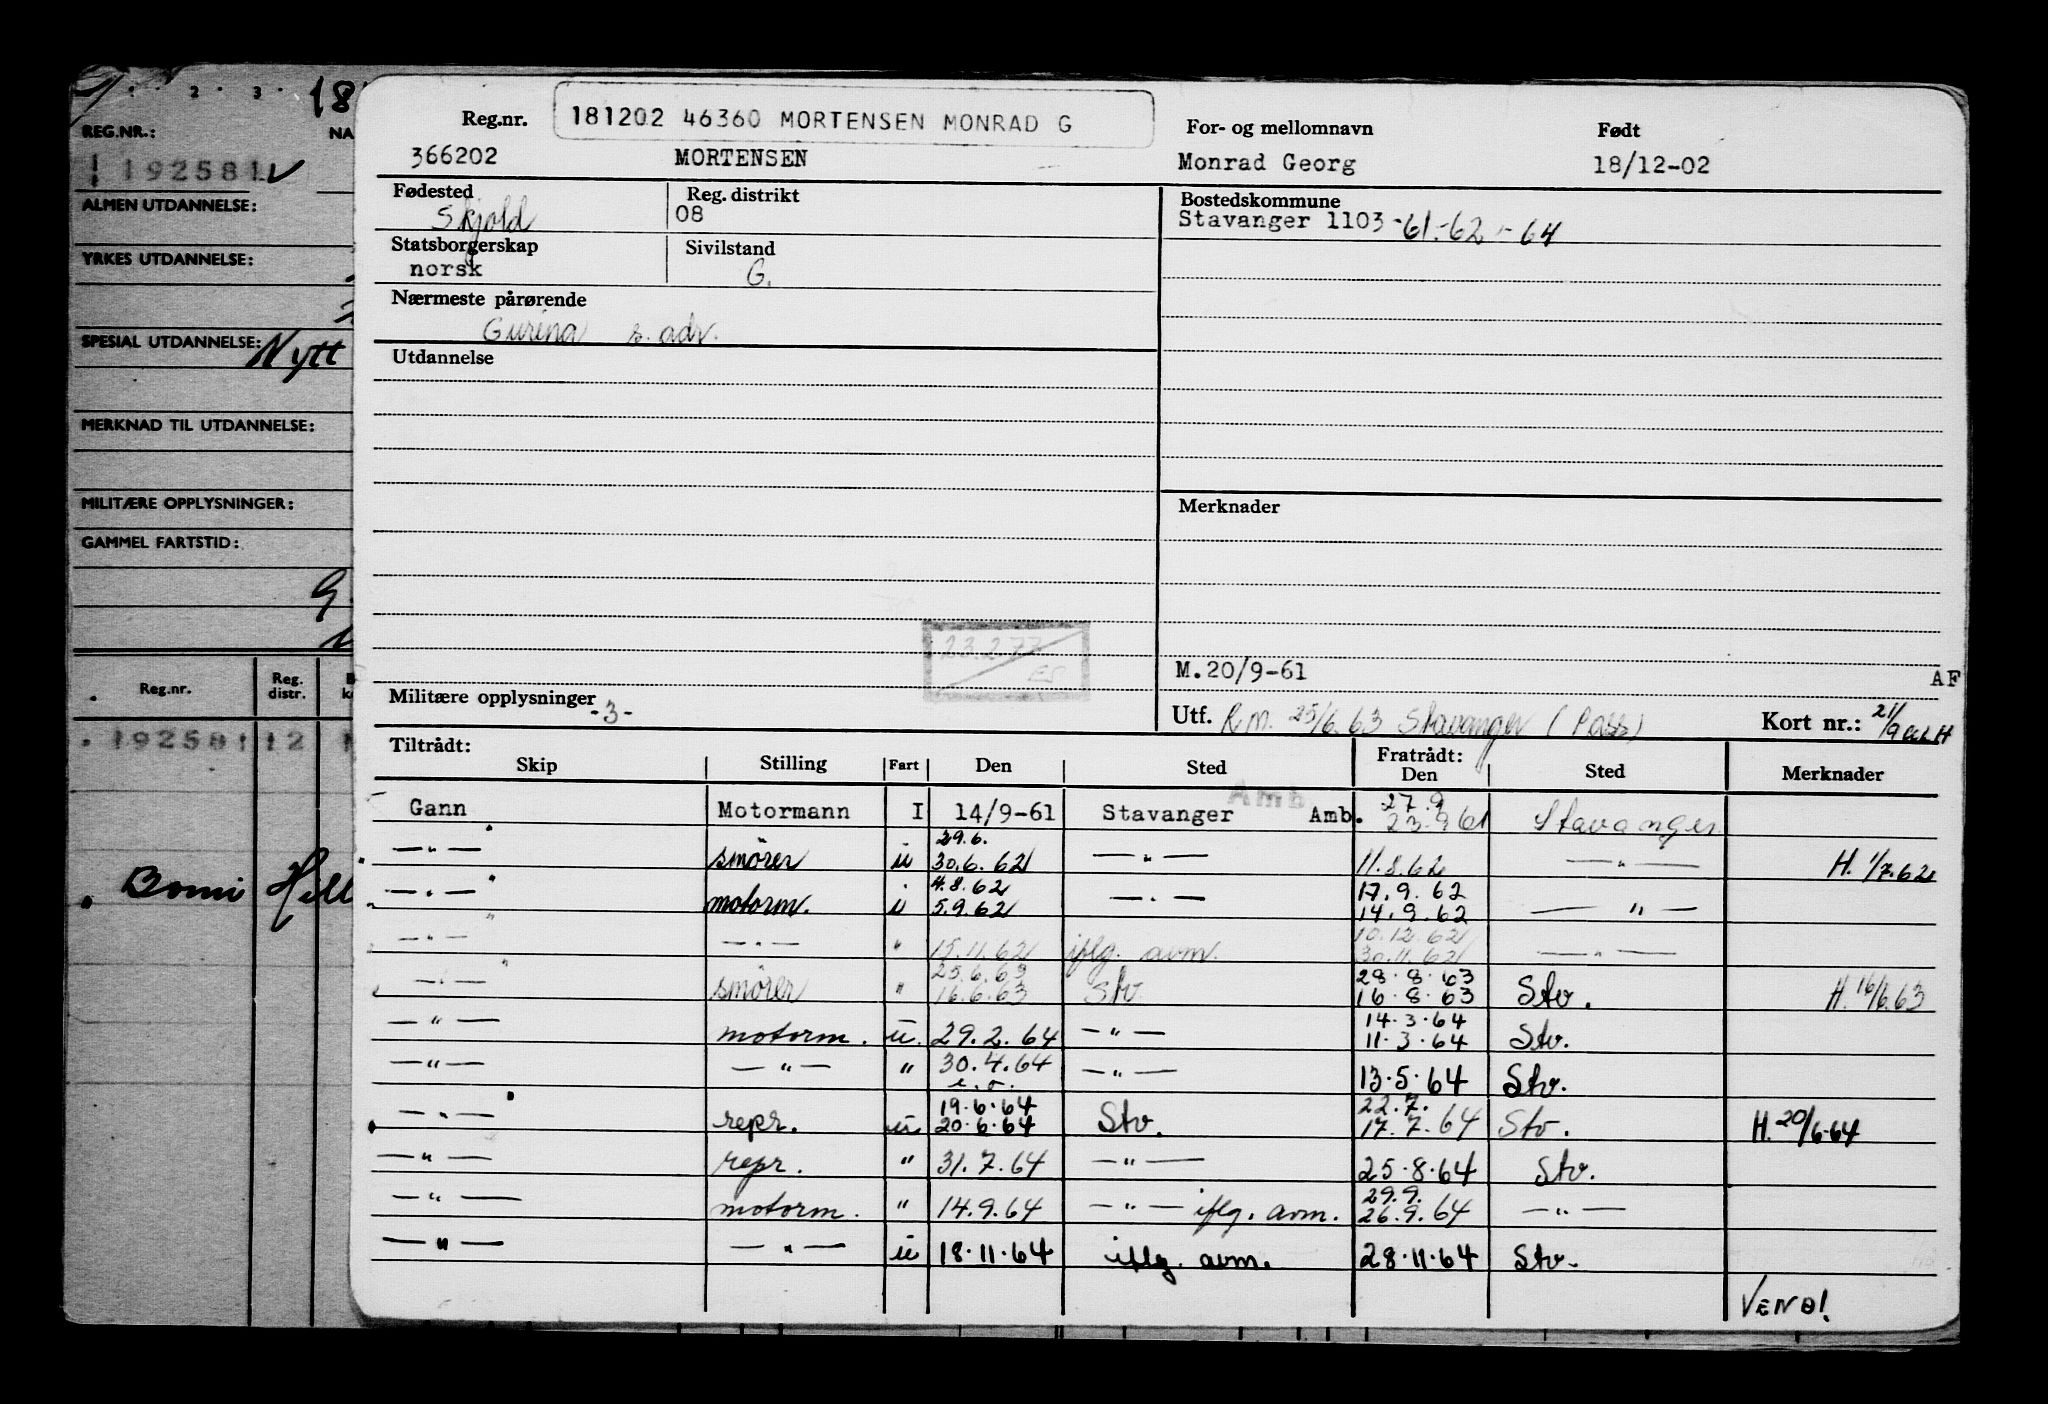 1 · 2 · 3 · 18
REG.NR.: NA
192581
ALMEN UTDANNELSE:
YRKES UTDANNELSE:
SPESIAL UTDANNELSE: Nytt
MERKNAD TIL UTDANNELSE:
MILITÆRE OPPLYSNINGER:
GAMMEL FARTSTID:
Reg.nr. Reg. distr.
192581 12
Bomi Hill
Reg.nr. 181202 46360 MORTENSEN MONRAD G For- og mellomnavn Født
366202 MORTENSEN Monrad Georg 18/12-02
Fødested Reg. distrikt Bostedskommune
Skjold 08 Stavanger 1103-61-62-64
Statsborgerskap Sivilstand
norsk G.
Nærmeste pårørende
Gurina s. adr.
Utdannelse
Merknader
23.2.77
ES
M.20/9-61 AF
Militære opplysninger -3- Utf. R.M. 25/6.63 Stavanger (Pass) Kort nr.: 21/9
Tiltrådt: Fratrådt:
Skip Stilling Fart Den Sted Den Sted Merknader
Amb
27.9
Gann Motormann I 14/9-61 Stavanger Amb. 23.9 61 Stavanger
29.6.
— " — smörer u 30.6.62 — " — 11.8.62 — " — H. 1/7.62
4.8.62 17.9.62
— " — motorm. u 5.9.62 — " — 14.9.62 — " —
10.12.62
— " — — " — " 15.11.62 iflg. avm. 30.11.62 — " —
25.6.63 28.8.63
— " — smörer " 16.6.63 Stv 16.8.63 Stv. H. 16/6.63
14.3.64
— " — motorm. u. 29.2.64 — " — 11.3.64 Stv.
— " — — " — " 30.4.64 — " — 13.5.64 Stv.
e.o.
19.6.64 22.7.
— " — repr. u 20.6.64 Stv. 17.7.64 Stv. H. 20/6-64
— " — repr. " 31.7.64 — " — 25.8.64 Stv.
29.9.
— " — motorm. " 14.9.64 — " — iflg. avm. 26.9.64 — " —
— " — — " — u 18.11.64 iflg. avm. 28.11.64 Stv.
VEND!